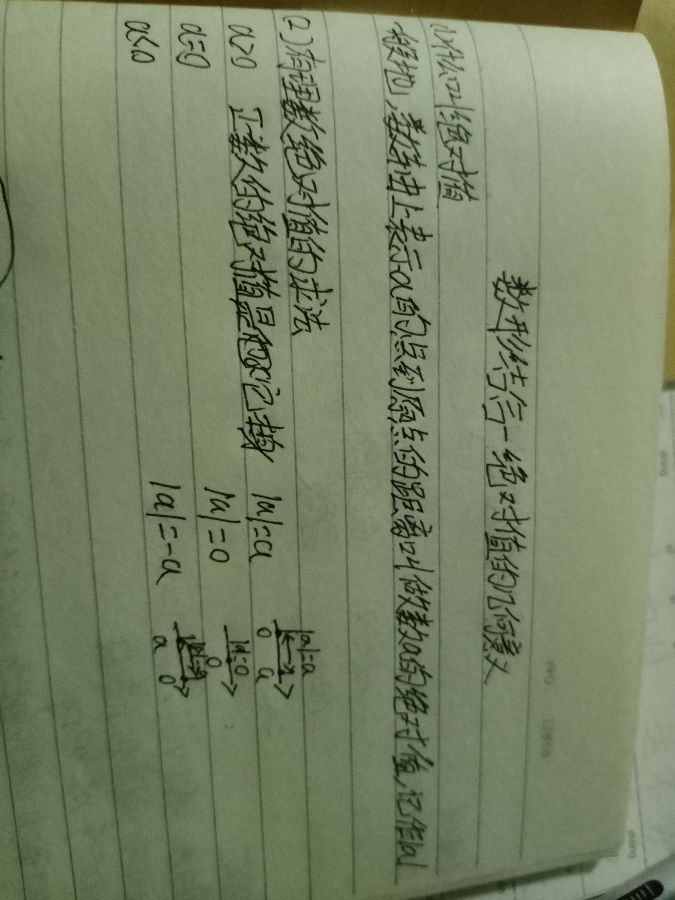 数形结合—绝对值的几何意义
(1)什么叫绝对值
一般地,数轴上表示a的点到原点的距离叫做数a的绝对值,记作|a|
(2)有理数绝对值的求法
a>0 正数的绝对值是它 |a|=a |a|=a
0 a
a=0 |a|=0 |a|=0
0
a<0 |a|=-a
a 0